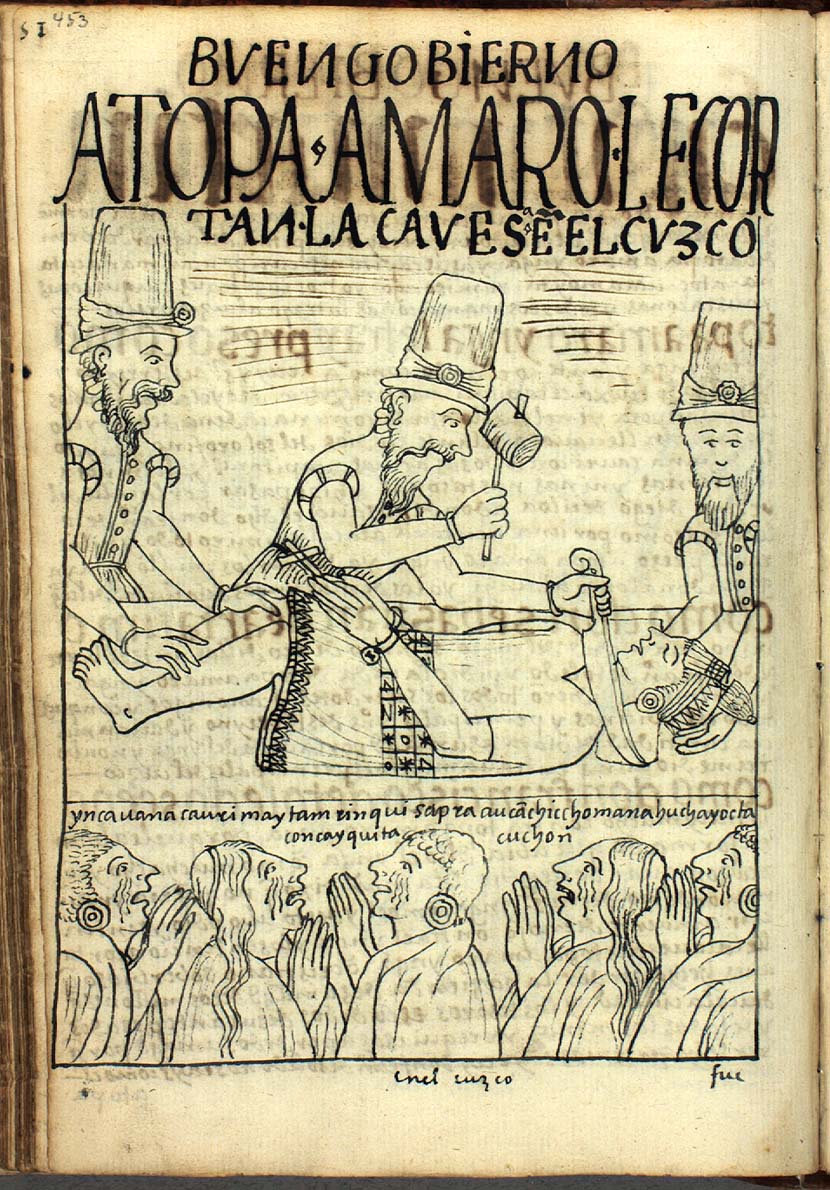 453
BVEN GOBIERNO
ATOPA AMARO LE COR
TAN LA CAVESA Ẽ EL CVZCO
ynca uana cauri maytam rinqui sapra aucãchic chomana huchayocta
concayquita cuchon
enel cuzco
fue